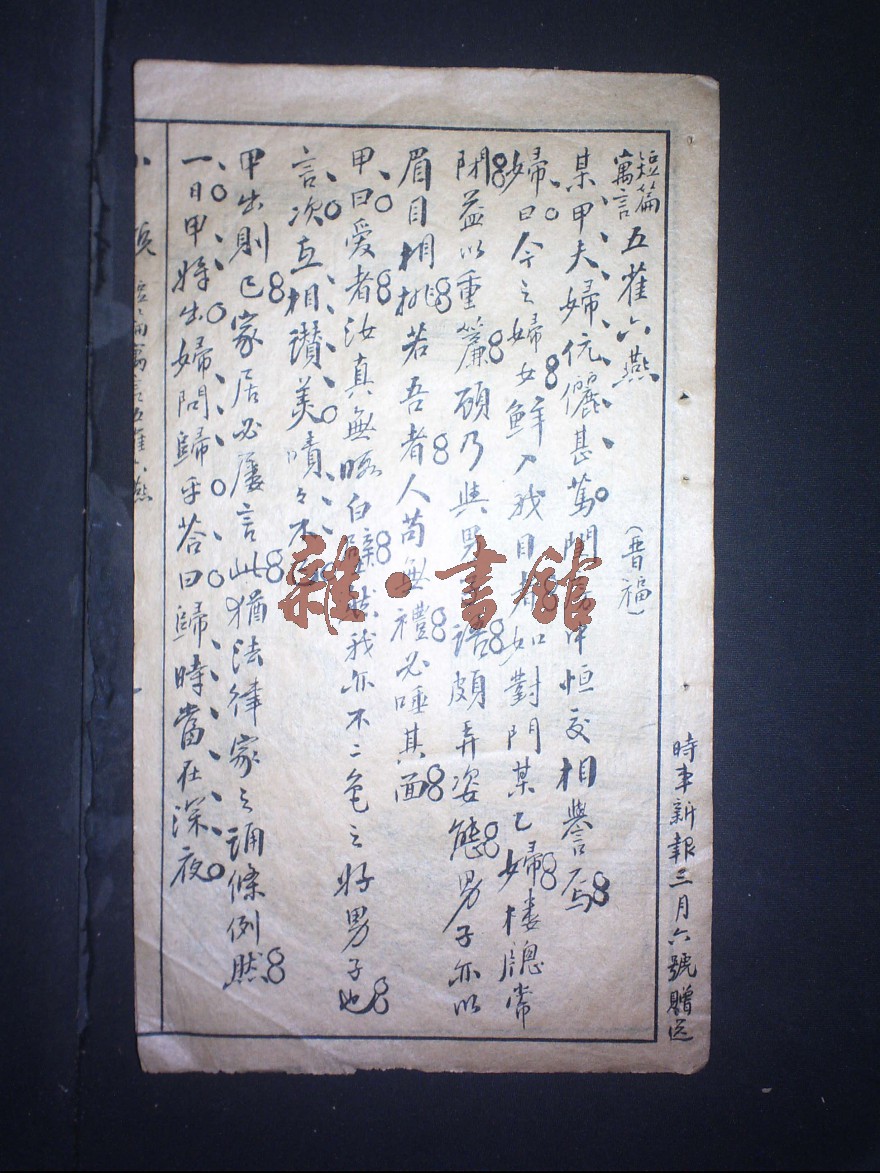 時事新報三月六號贈送
短篇寓言 五雀六燕
(晋福)
某甲夫婦伉儷甚篤閨房中恒交相譽焉
婦曰今之婦女鮮入我目者如對門某乙婦樓牕常
閉益以重簾顧乃與男子語頗弄姿態男子亦以
眉目相挑若吾者人苟無禮必唾其面
甲曰愛者汝真無瑕白璧然我亦不二色之好男子也
言次互相讚美嘖々不已
甲出則已家居必屢言此猶法律家之誦條例然
一日甲將出婦問歸乎答曰歸時當在深夜
小 短篇寓言五雀六燕
雜·書館